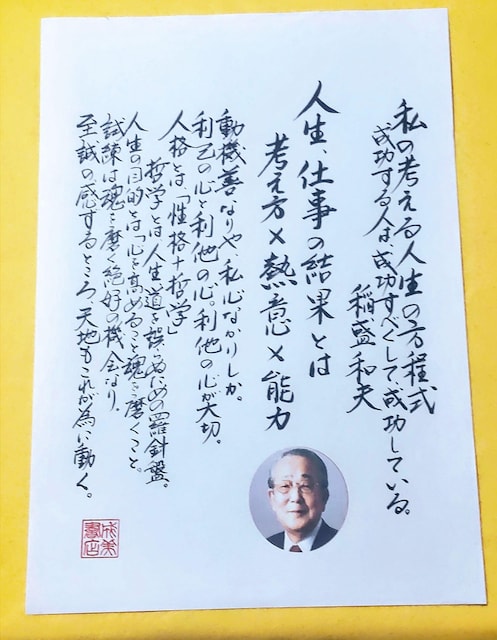 私の考える人生の方程式
成功する人は、成功すべくして、成功している。
稲盛和夫
人生、仕事の結果とは
考え方×熱意×能力
動機善なりや、私心なかりしか。
利己の心と利他の心。利他の心が大切。
人格とは、「性格+哲学」
哲学とは人生道を誤らぬための羅針盤。
人生の目的とは「心を高めること、魂を磨くこと。
試練は魂を磨く絶好の機会なり、
至誠の感ずるところ、天地もこれが為に動く。